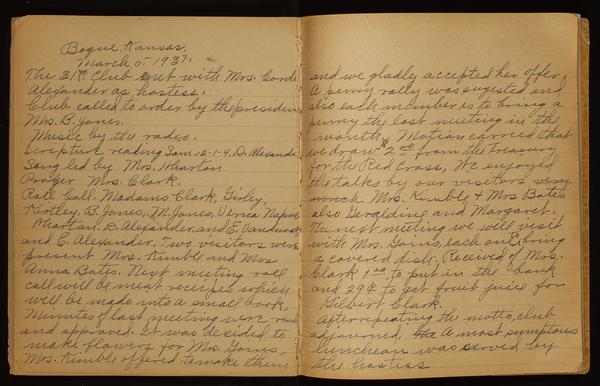 Bogue, Kansas,
March 5, 1937.
The 3 K. Club met with Mrs. Corda
Alexander as hostess.
Club called to order by the president
Mrs. B. Jones.
Music by the radio.
Scripture reading Sam 12-1-9, D. Alexander
Song led by Mrs. Wharton
Prayer Mrs. Clark.
Roll Call. Madams Clark, Girley,
Kirtley, B. Jones, M. Jones, Napue
Wharton, D. Alexander, and E. Vanduvall
and C. Alexander. Two visitors were
present Mrs. Kimble and Mrs
Anna Bates. Next meeting roll
call will be meat receipes which
will be made into a small book.
Minutes of last meeting were read
and approved. It was decided to
make flowers for Mrs. Goins,
Mrs. Kimble offered to make them
and we gladly accepted her offer,
A penny rally was sugested and
also each member is to bring a
penny the last meeting in the
month. Motion carried that
we draw $2.00 from the treasury
for the Red Cross, We enjoyed
the talks by our visitors very
much Mrs. Kimble & Mrs Bates
also Geraldine and Margaret.
The next meeting we will visit
with Mrs. Goins, each one bring
a covered dish. Received of Mrs.
Clark 1.00 to put in the bank
and 29¢ to get fruit juice for
Gilbert Clark.
After repeating the motto, club
adjourned. A most sumptous
luncheon was served by
the hostess